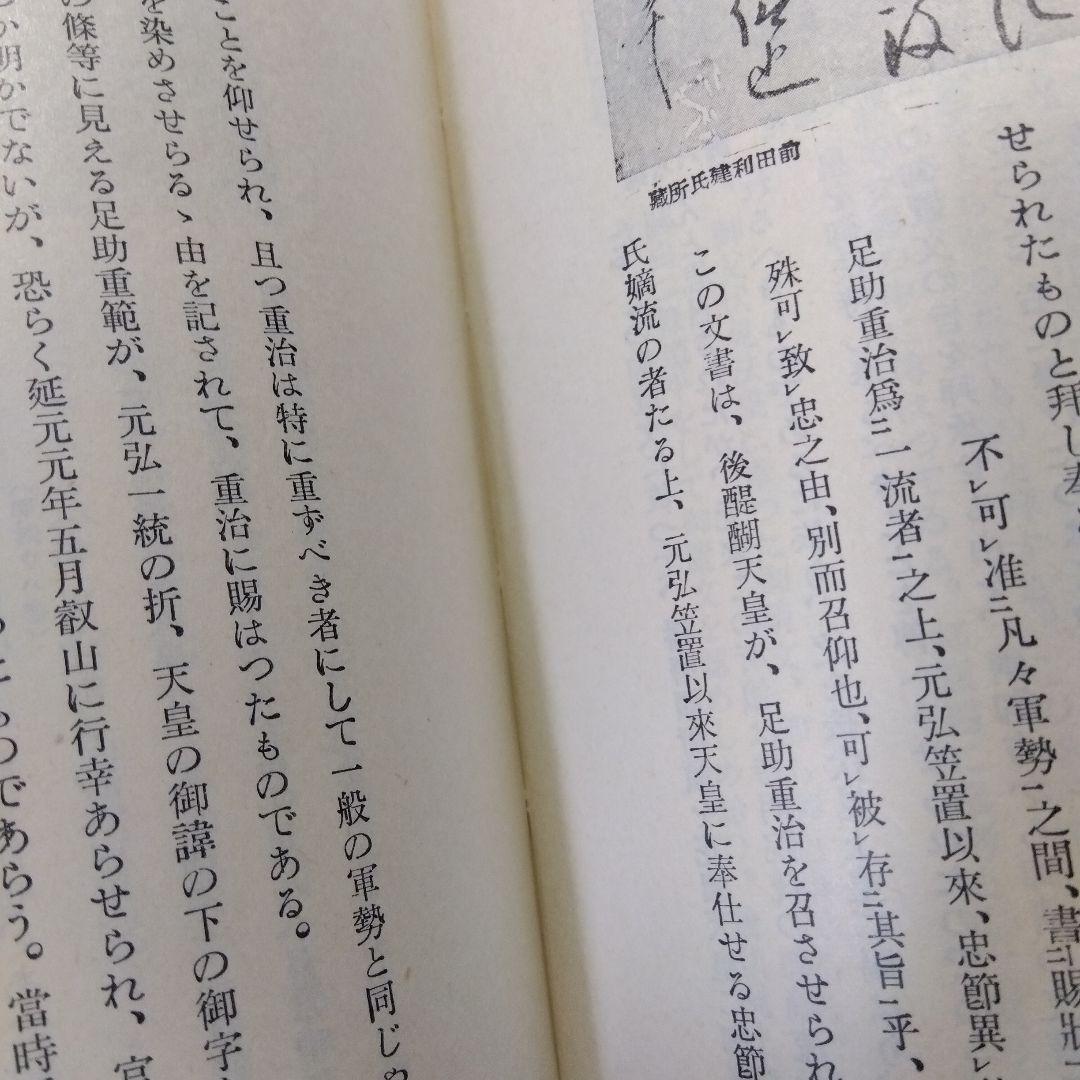 前田和建氏所藏
せられたものと拜し奉
足助重治爲ニ一流者一之上、元弘笠置以來、忠節異レ
不レ可レ准ニ凡々軍勢一之間、書ニ賜狀一
殊可レ致レ忠之由、別而召仰也、可レ被レ存ニ其旨一乎、
この文書は、後醍醐天皇が、足助重治を召させられ
氏嫡流の者たる上、元弘笠置以來天皇に奉仕せる忠節
ことを仰せられ、且つ重治は特に重ずべき者にして一般の軍勢と同じ
を染めさせらるゝ由を記されて、重治に賜はつたものである。
の條等に見える足助重範が、元弘一統の折、天皇の御諱の下の御字
か明かでないが、恐らく延元元年五月叡山に行幸あらせられ、
のであらう。當時